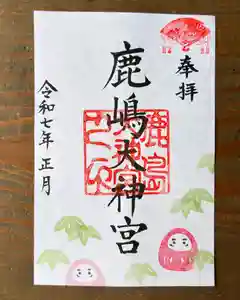 奉拝
鹿嶋天神宮
令和七年 正月